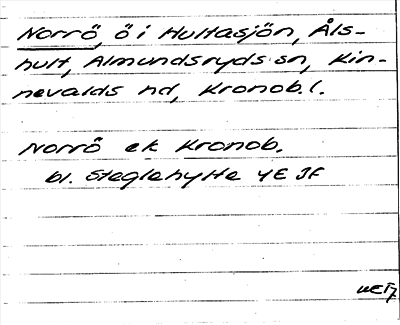 Norrö, ö i Hultasjön, Åls-
hult, Almundsryds sn, Kin-
nevalds hd, Kronob.l.
Norrö ek Kronob.
bl. Steglehytte 4E 3F